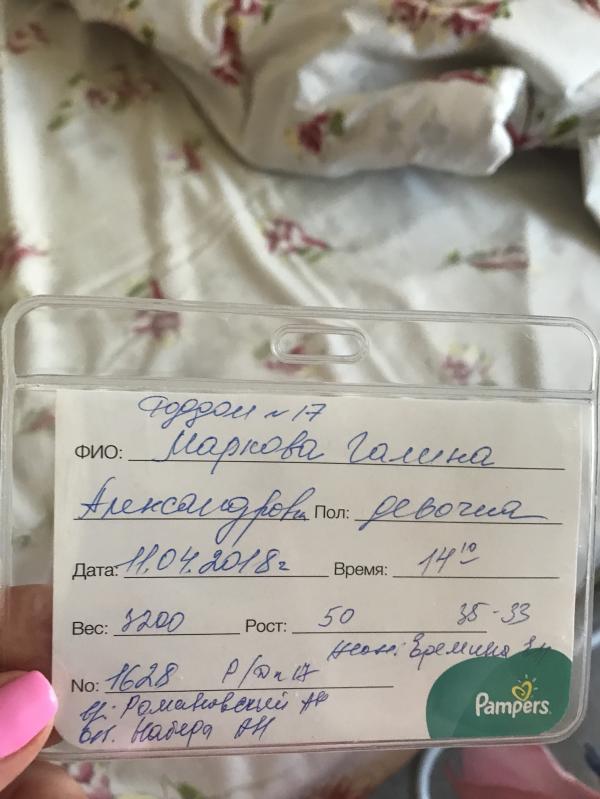 роддом n 17
ФИО: Маркова Галина
Александровн Пол: девочка
Дата: 11.04.2018г Время: 14 10
Вес: 3200 Рост: 50 35-33
Еремина
No: 1628 Р/д n 17
Романовский АР
АН
Pampers